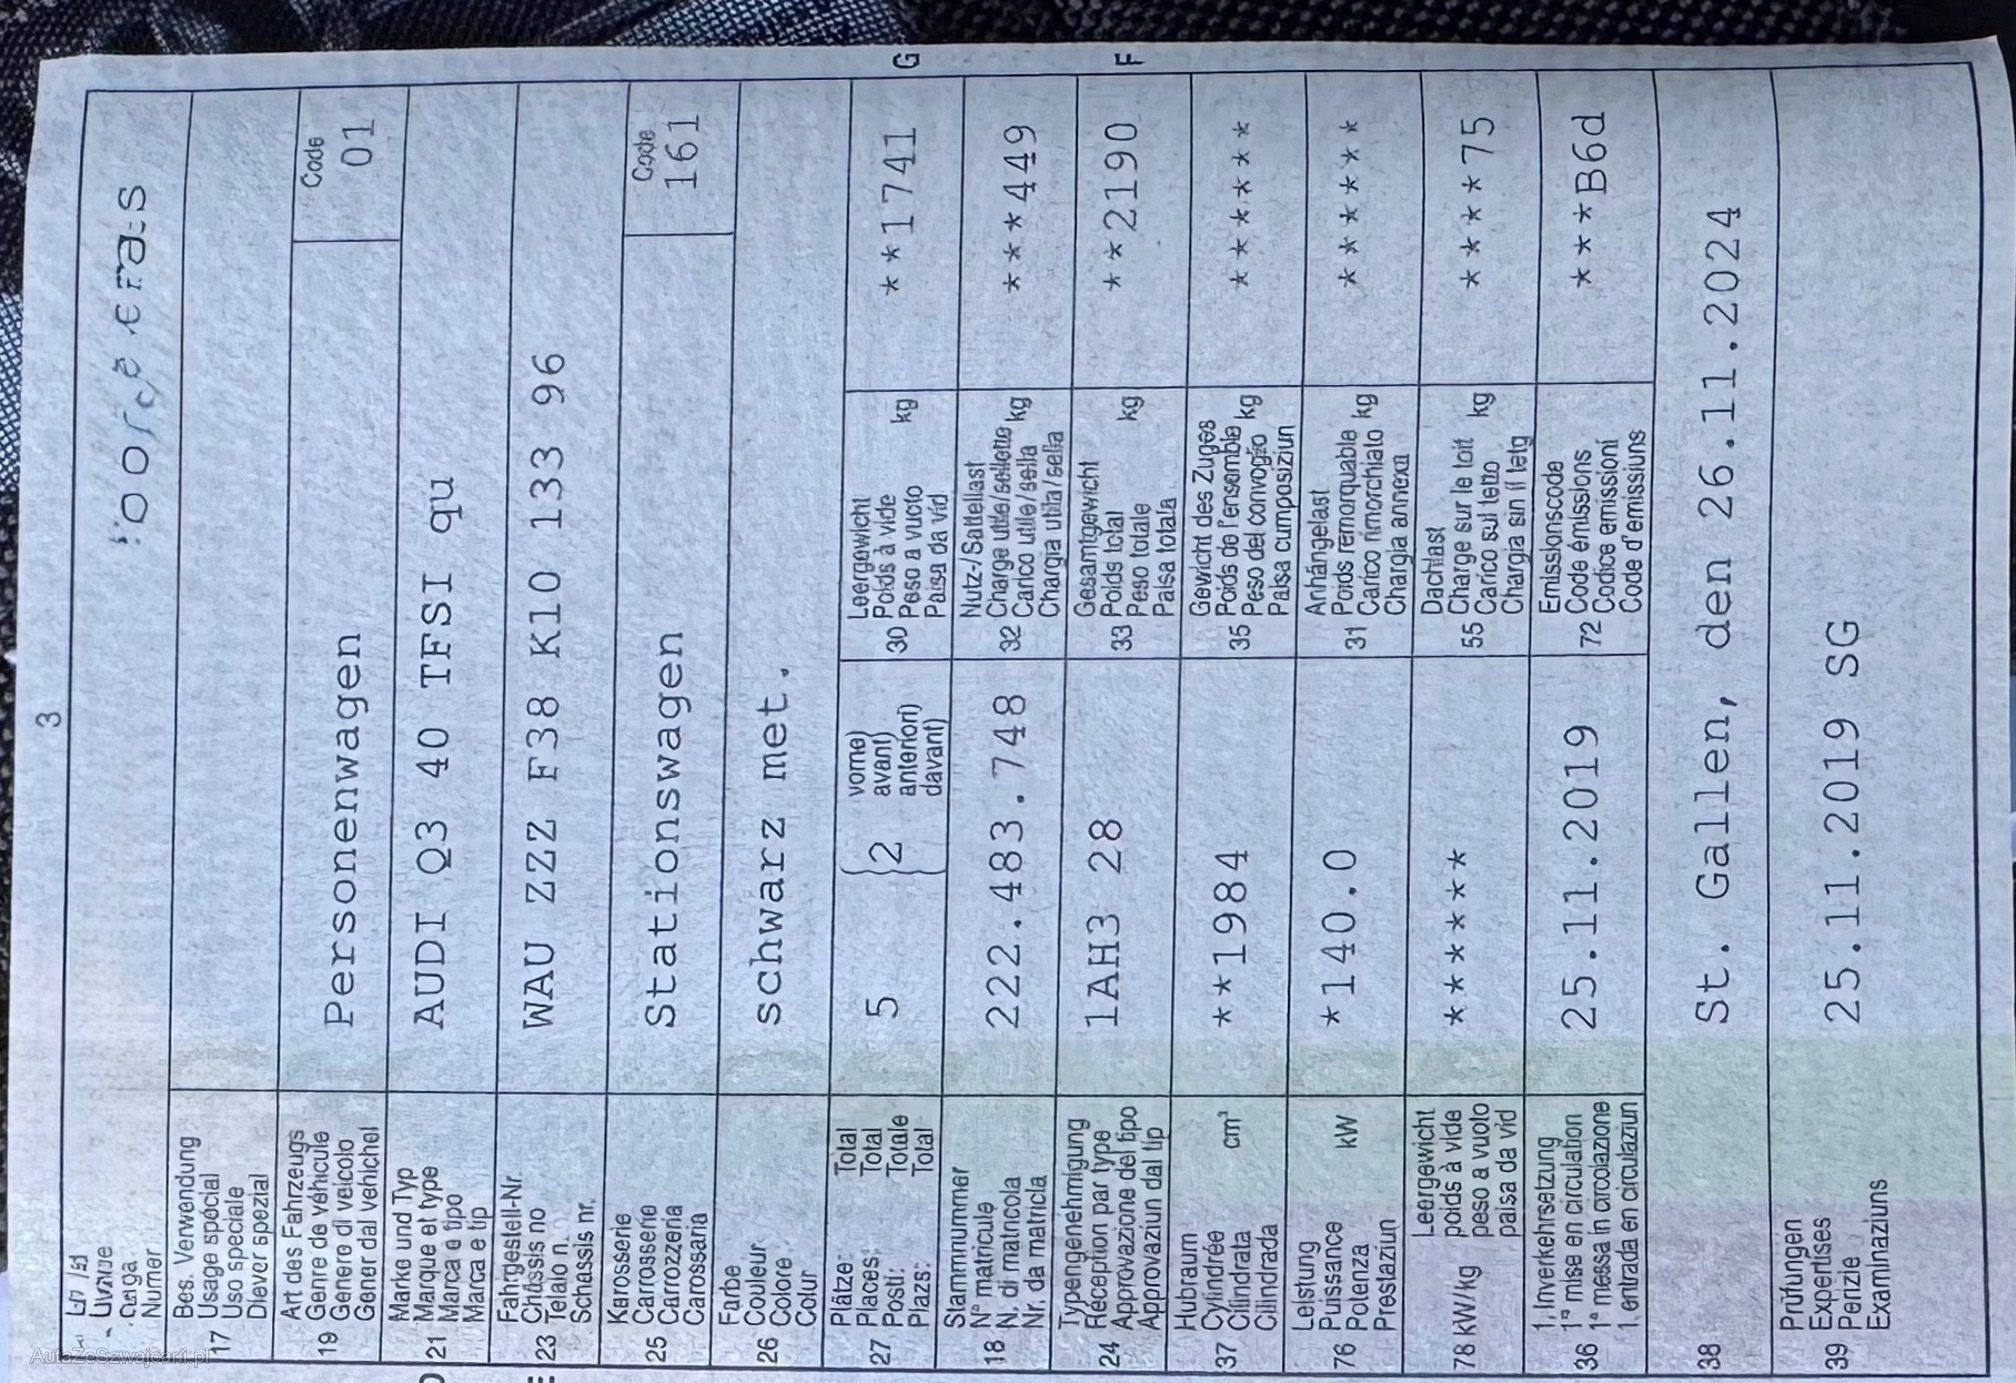 3
Numer
17 Bes. Verwendung
Usage spécial
Uso speciale
Diever spezial
19 Art des Fahrzeugs
Genre de véhicule
Genere di veicolo
Gener dal vehichel
Personenwagen
Code
01
21 Marke und Typ
Marque et type
Marca e tipo
Marca e tip
AUDI Q3 40 TFSI qu
23 Fahrgestell-Nr.
Châssis no
Telaio n.
Schassis nr.
WAU ZZZ F38 K10 133 96
E
25 Karosserie
Carrosserie
Carrozzeria
Carossaria
Stationswagen
Code
161
26 Farbe
Couleur
Colore
Colur
schwarz met.
27 Plätze: Total
Places: Total
Posti: Totale
Plazs: Total
5
2
vorne)
avant)
anteriori)
davant)
30 Leergewicht
Poids à vide
Peso a vuoto
Paisa da vid
kg
**1741
G
18 Stammnummer
N° matricule
N. di matricola
Nr. da matricla
222.483.748
32 Nutz-/Sattellast
Charge utile/sellette
Carico utile/sella
Chargia utila/sella
kg
***449
24 Typengenehmigung
Réception par type
Approvazione del tipo
Approvaziun dal tip
1AH3 28
33 Gesamtgewicht
Poids total
Peso totale
Paisa totala
kg
**2190
F
37 Hubraum
Cylindrée
Cilindrata
Cilindrada
cm³
**1984
35 Gewicht des Zuges
Poids de l'ensemble
Peso del convoglio
Paisa cumposiziun
kg
******
76 Leistung
Puissance
Potenza
Prestaziun
kW
*140.0
31 Anhängelast
Poids remorquable
Carico rimorchiato
Chargia annexa
kg
******
78 kW/kg
Leergewicht
poids à vide
peso a vuoto
paisa da vid
******
55 Dachlast
Charge sur le toit
Carico sul tetto
Chargia sin il tetg
kg
****75
36 1. Inverkehrsetzung
1re mise en circulation
1a messa in circolazione
1. entrada en circulaziun
25.11.2019
72 Emissionscode
Code émissions
Codice emissioni
Code d'emissiuns
***B6d
38
St. Gallen, den 26.11.2024
39 Prüfungen
Expertises
Perizie
Examinaziuns
25.11.2019 SG
AutaZeSzwajcarii.pl